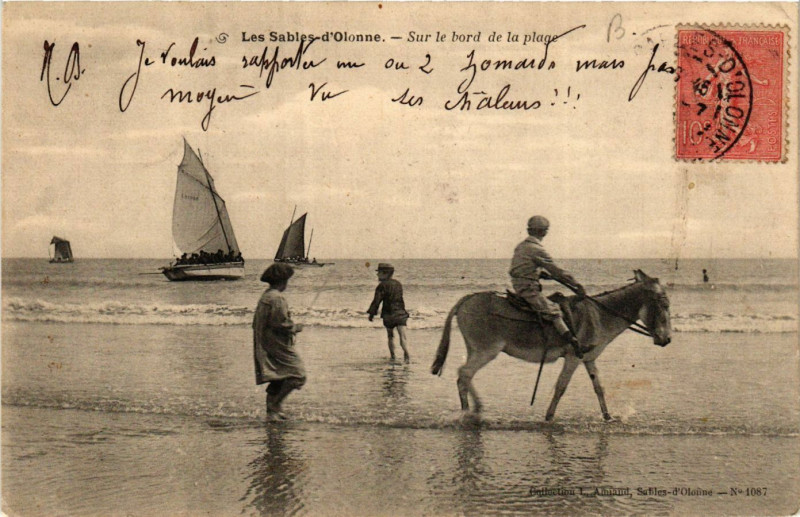 Les Sables-d'Olonne. — Sur le bord de la plage
B
N.B. Je voulais rapporter un ou 2 homards mais pas
moyen vu les chaleurs!!!
RÉPUBLIQUE FRANÇAISE
POSTES
10c
S-D'OLONNE
Collection L. Amiaud, Sables-d'Olonne — No 1087